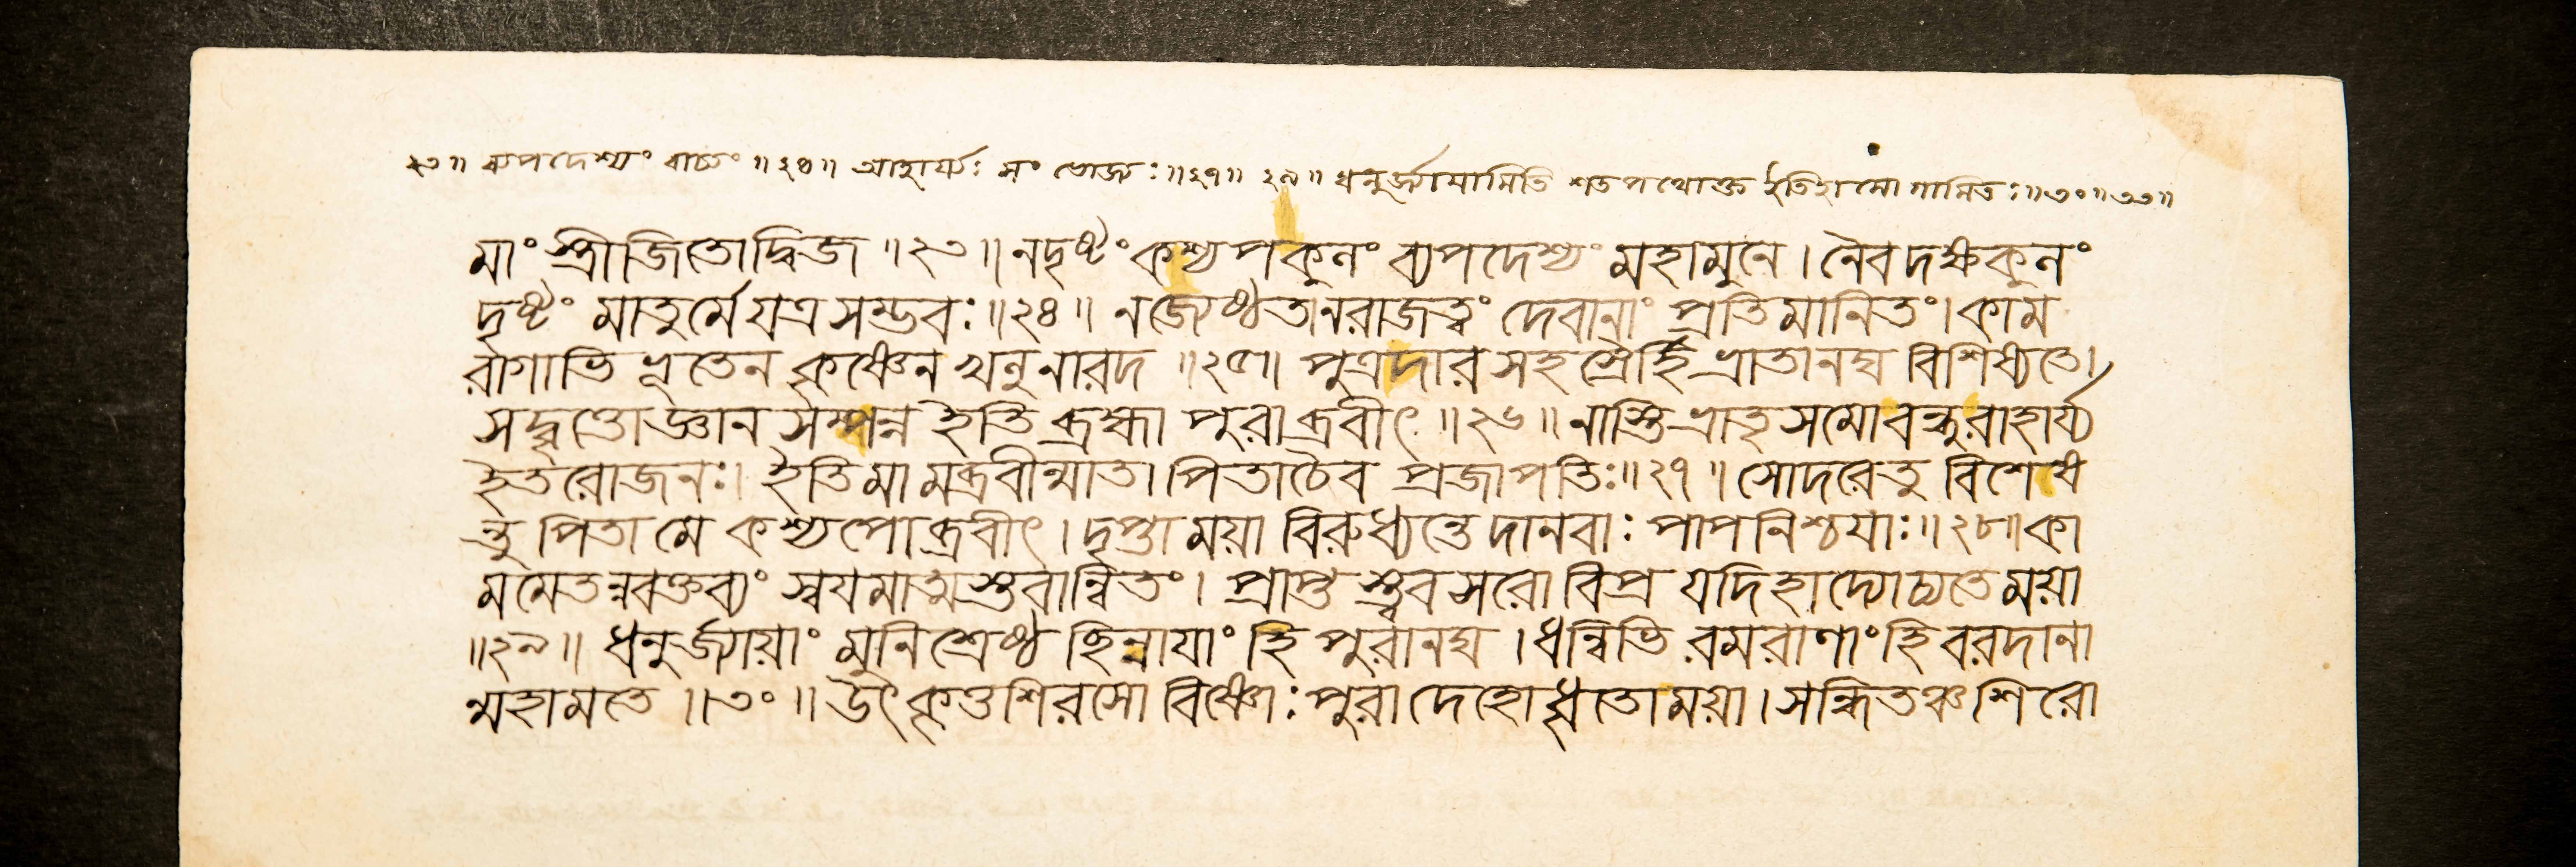 ২৩॥ ব্যপদেশ্যং বাচ্যং ॥২৪॥ আহার্য্যঃ সং ভোজ্যঃ॥২৭॥ ২৯॥ ধনুর্জ্যামামিতি শতপথোক্ত ইতিহাসো গামিতঃ॥৩০॥৩১॥
মাং স্ত্রীজিতোদ্বিজ ॥২৩॥ নদৃষ্টং কশ্যপকুলং ব্যপদেশ্যং মহামুনে। নৈবদক্ষকুলং
দৃষ্টং মাতুর্মে যত্রসম্ভবঃ॥২৪॥ নজ্যেষ্ঠতানরাজত্বং দেবানাং প্রতিমানিতং। কাম
রাগাভিভূতেন কৃষ্ণেন খলুনারদ ॥২৫॥ পুত্রদারসহস্রৈর্হি ভ্রাতানঘ বিশিষ্যতে।
সদ্বৃত্তোজ্ঞানসম্পন্ন ইতি ব্রহ্মা পুরাব্রবীৎ ॥২৬॥ নাস্তিভ্রাতৃসমোবন্ধুরাহার্য্য
ইতরোজনঃ। ইতিমামব্রবীন্মাতা পিতাচৈব প্রজাপতিঃ॥২৭॥ সোদরেতু বিশেষ
ন্তু পিতা মে কশ্যপোব্রবীৎ। দৃপ্তাময়া বিরুধ্যন্তে দানবাঃ পাপনিশ্চযাঃ॥২৮॥কা
মমেতন্নবক্তব্যং স্বযমাত্মস্তবান্বিতং। প্রাপ্তস্ত্ববসরো বিপ্র যদিহাদ্যোচ্যতে ময়া
॥২৯॥ ধনুর্জ্যায়াং মুনিশ্রেষ্ঠ ছিন্নাযাং হি পুরানঘ । ধন্বিভি রমরাণাং হি বরদানা
ন্মহামতে ॥৩০॥ উৎকৃত্তশিরসো বিষ্ণোঃ পুরা দেহো ধৃতোময়া। সন্ধিতঞ্চ শিরো